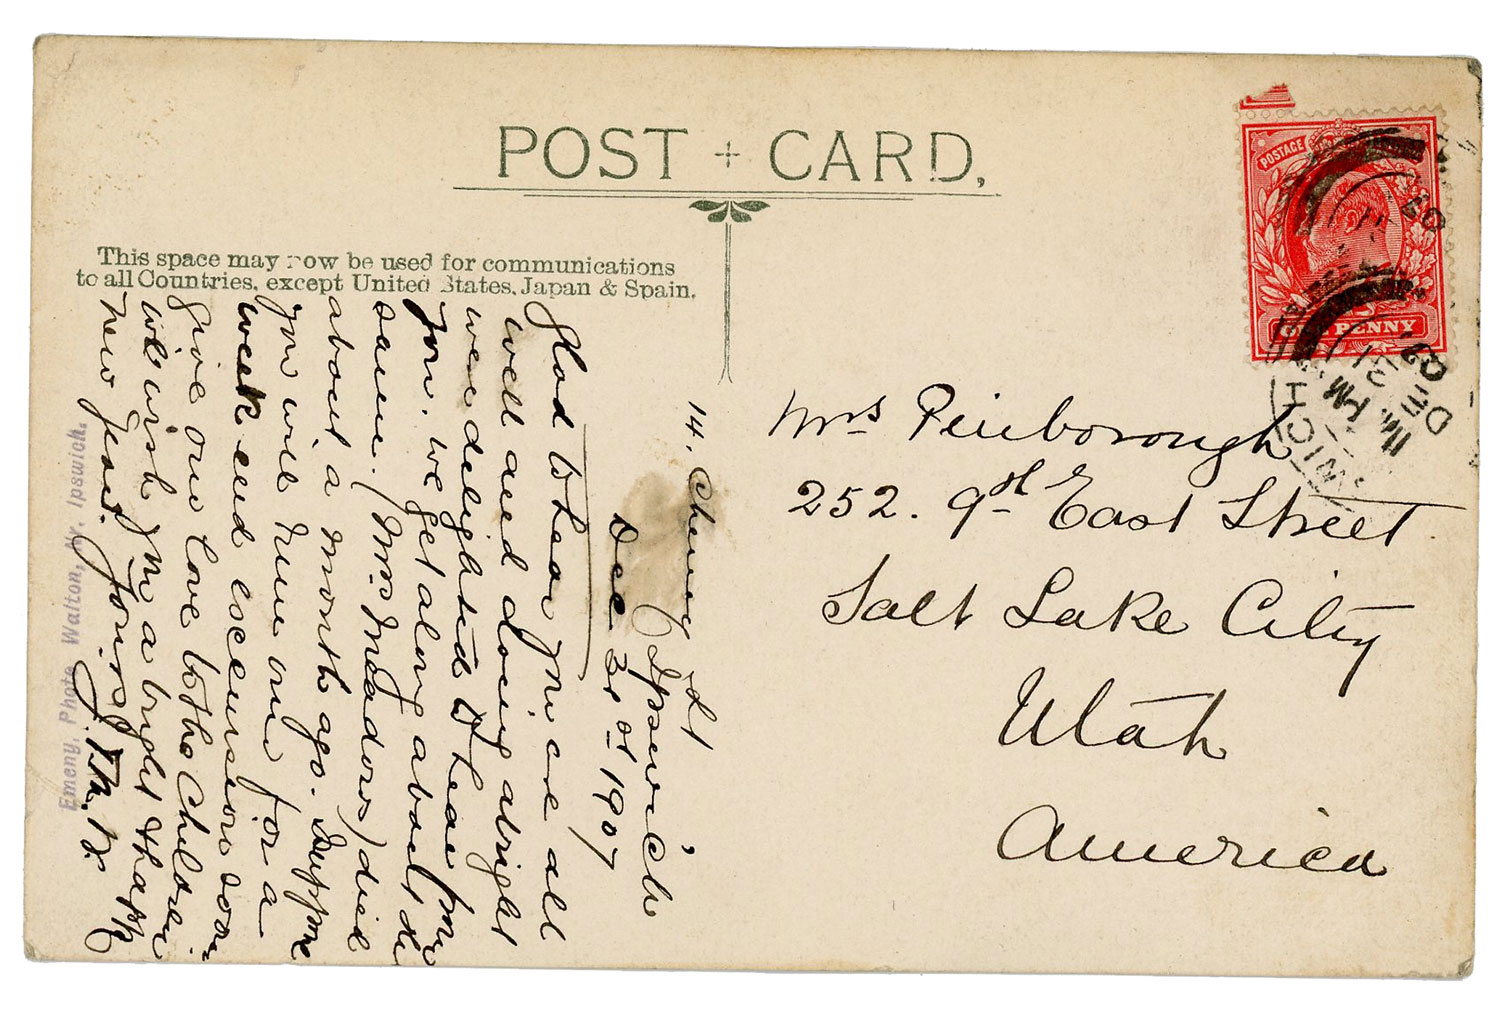 POST + CARD.
This space may now be used for communications
to all Countries, except United States, Japan & Spain.
14, Cheney St
Ipswich
Dec 31st 1907
Glad to hear you are all
well and doing alright
were delighted to hear from
you. We get along about the
same. (Mrs Meadows) died
about a month ago. Suppose
you will run over for a
week end excursion soon
give our love to the Children
will wish you a bright & happy
New Year. Yours
Emeny, Photo Walton, Nr. Ipswich.
Mrs Peinborough
252. 9st East Street
Salt Lake City
Utah
America
POSTAGE
ONE PENNY
WICH
PM
DE
07